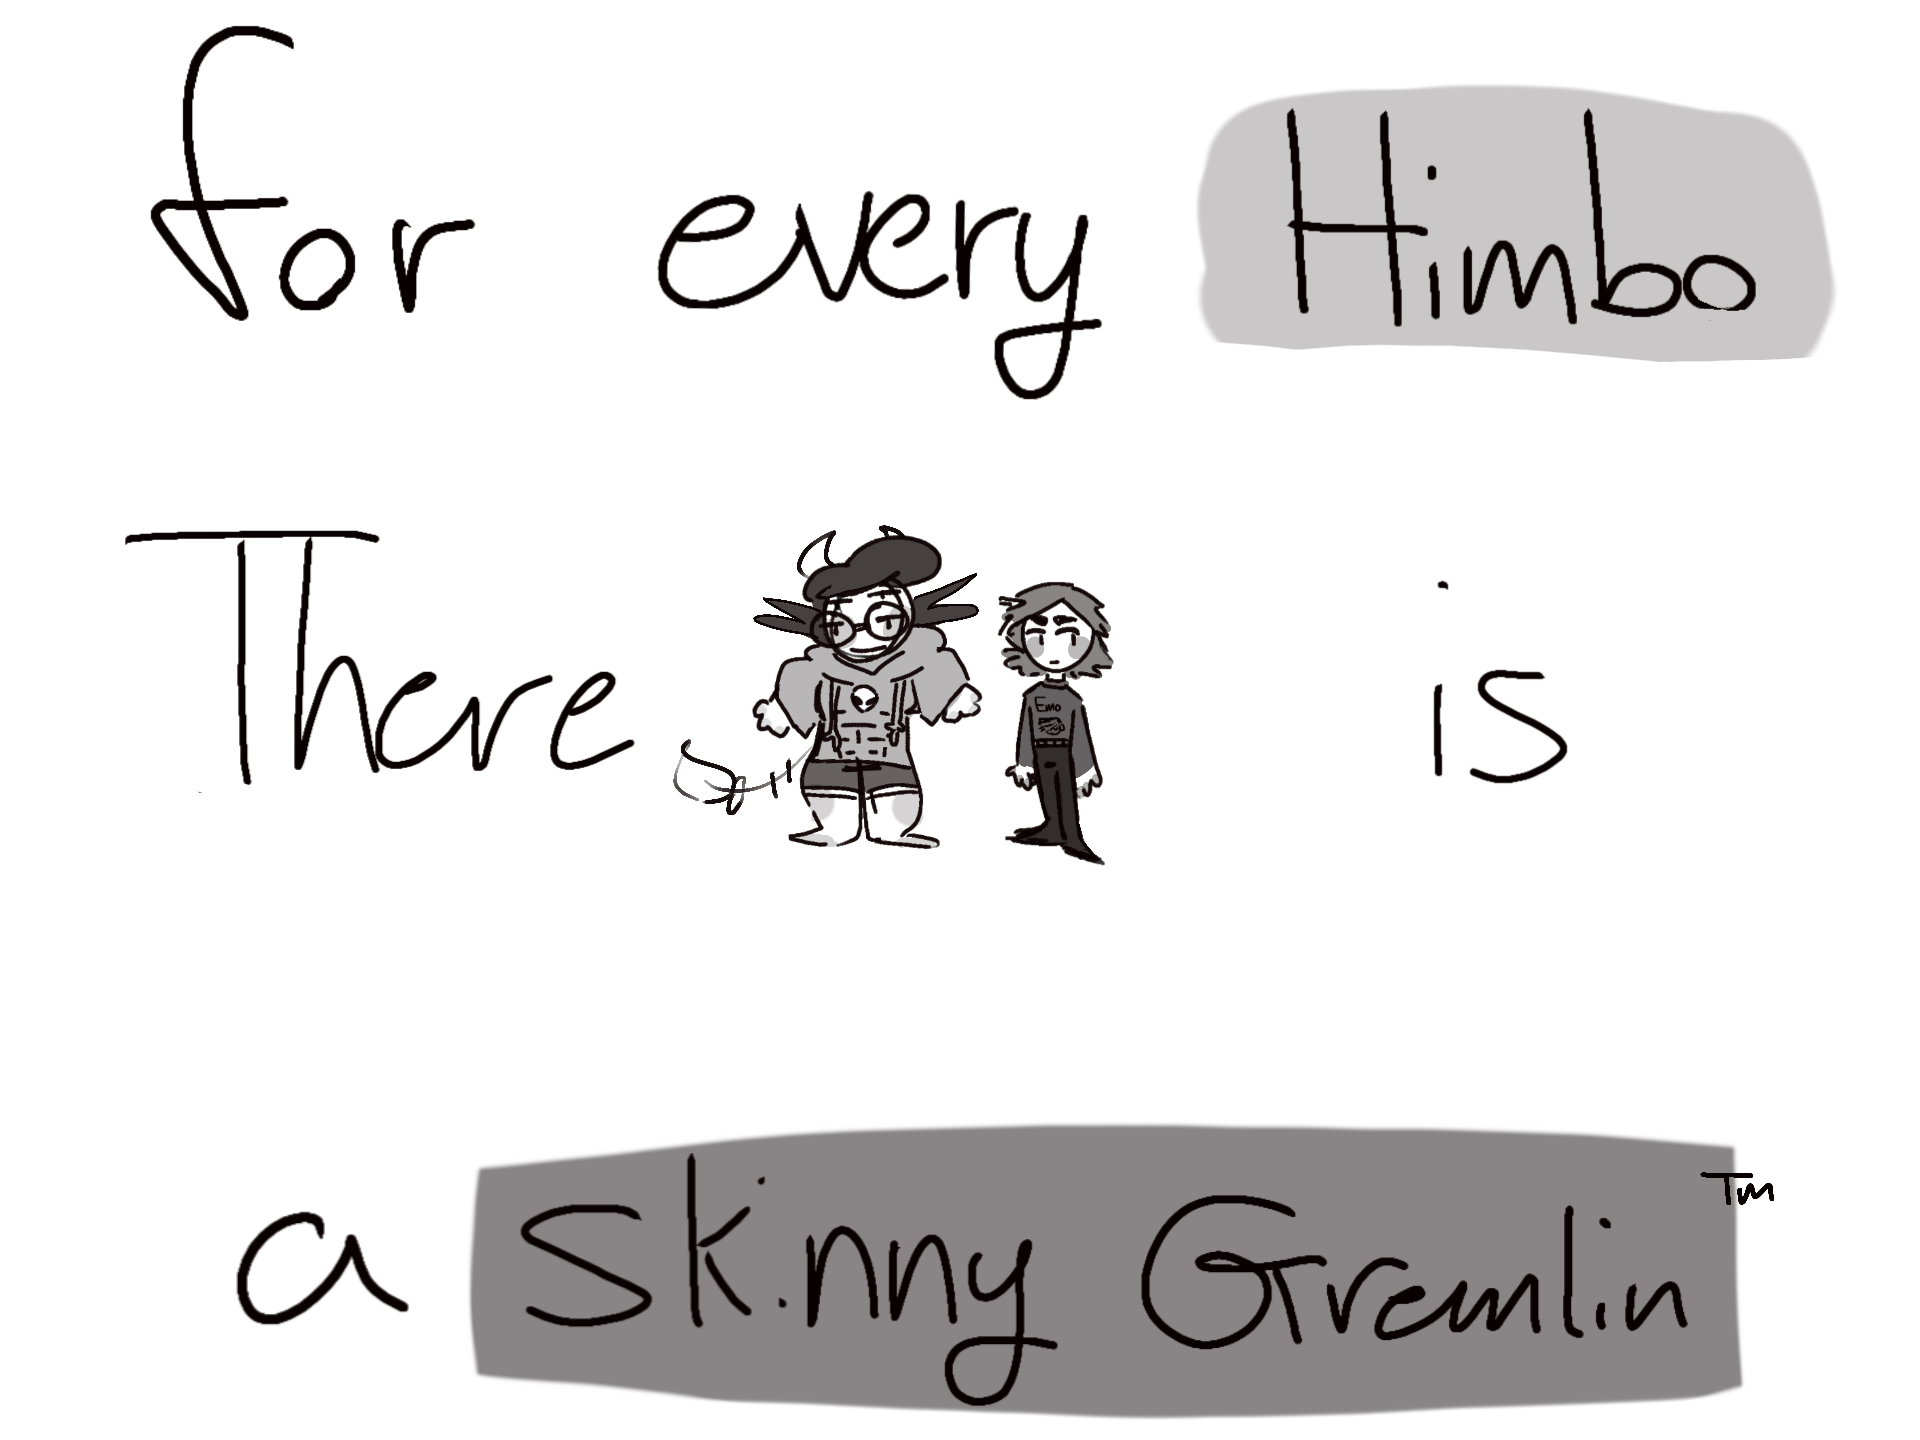 For every Himbo
There is
Emo
a Skinny Gremlin™